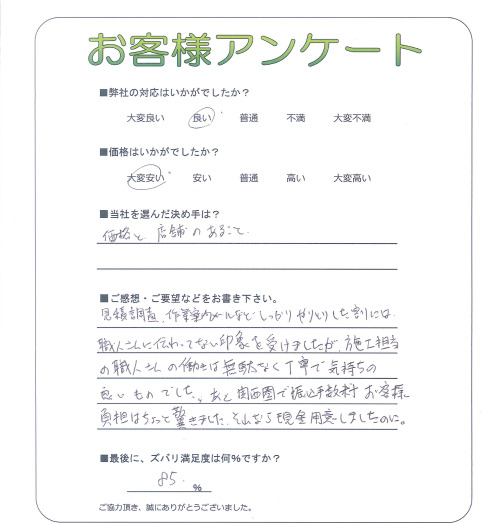 お客様アンケート
■弊社の対応はいかがでしたか？
大変良い 良い 普通 不満 大変不満
■価格はいかがでしたか？
大変安い 安い 普通 高い 大変高い
■当社を選んだ決め手は？
価格と店舗のあること。
■ご感想・ご要望などをお書き下さい。
見積調査、作業案内メールなど しっかりやりとりした割には
職人さんに伝わってない印象を受けましたが、施工担当
の職人さんの働きは無駄なく丁寧で気持ちの
良いものでした。あと関西圏で振込手数料お客様
負担はちょっと驚きました。そんなら現金用意しましたのに。
■最後に、ズバリ満足度は何％ですか？
85. ％
ご協力頂き、誠にありがとうございました。